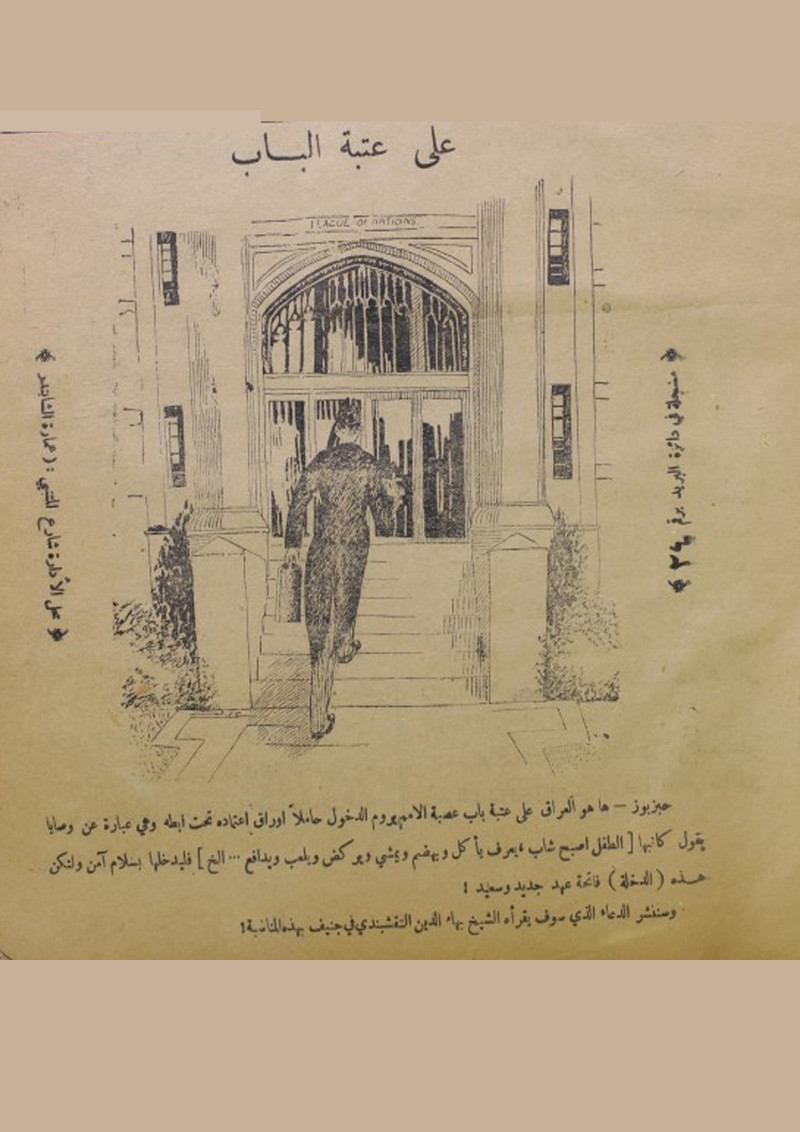 على عتبة البــاب
LEAGUE OF NATIONS.
﴿ مسجلة في دائرة البريد برقم ٢٤٩ ﴾
محل الأدارة شارع المتنبي : (عمارة
حبزبوز — ها هو العراق على عتبة باب عصبة الامم يروم الدخول حاملاً اوراق اعتماده تحت ابطه وهي عبارة عن وصايا
يقول كاتبها [ الطفل اصبح شاب ، يعرف يأكل ويهضم ويمشي ويركض ويلعب ويدافع ... الخ ] فليدخلها بسلام آمن ولتكن
هــذه ( الدخلة ) فاتحة عهد جديد وسعيد !
وسننشر الدعاء الذي سوف يقرأه الشيخ بهاء الدين النقشبندي في جنيف بهذه المناسبة !